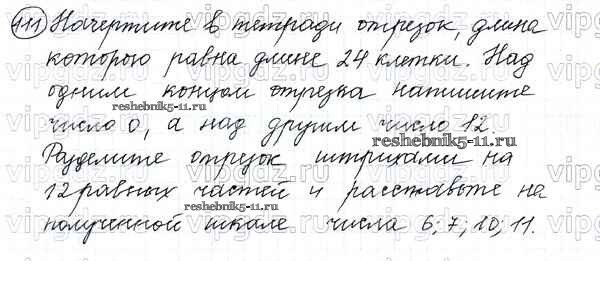 111 Начертите в тетради отрезок, длина
которого равна длине 24 клетки. Над
одним концом отрезка напишите
reshebnik5-11.ru
число 0, а над другим число 12.
reshebnik5-11.ru
Разделите отрезок штрихами на
12 равных частей и расставьте на
reshebnik5-11.ru
полученной шкале числа 6; 7; 10; 11.
vipgdz.ru